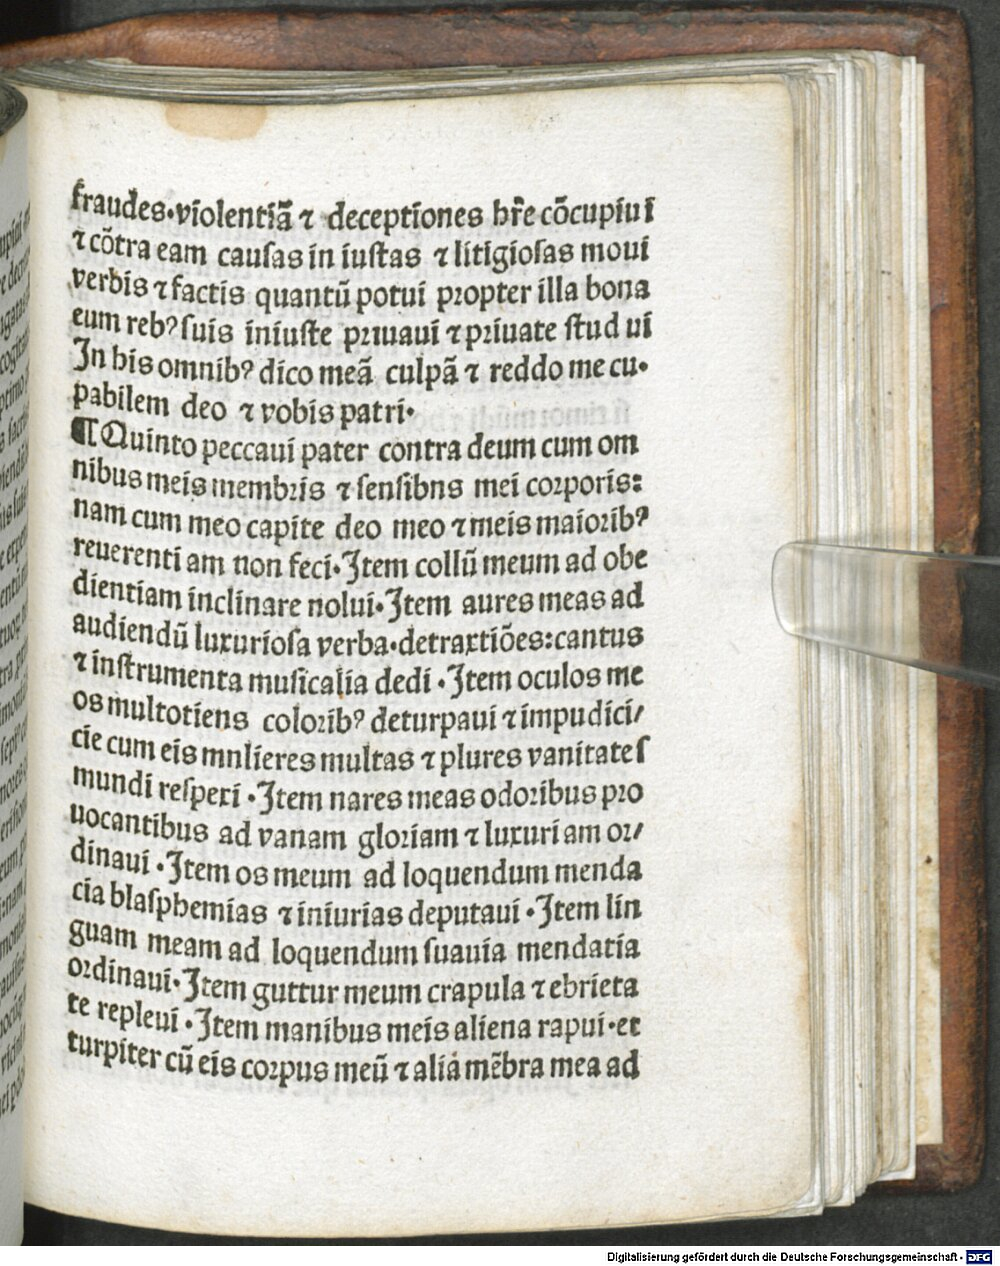 fraudes·violentiā ⁊ deceptiones hr̄e cōcupiui
⁊ cōtra eam causas in iustas ⁊ litigiosas moui
verbis ⁊ factis quantū potui propter illa bona
eum rebꝰ suis iniuste priuaui ⁊ priuate stud ui
In his omnibꝰ dico meā culpā ⁊ reddo me cu·
pabilem deo ⁊ vobis patri·
¶ Quinto peccaui pater contra deum cum om
nibus meis membris ⁊ sensibns mei corporis:
nam cum meo capite deo meo ⁊ meis maioribꝰ
reuerenti am non feci·Item collū meum ad obe
dientiam inclinare nolui·Item aures meas ad
audiendū luxuriosa verba·detraxtiōes:cantus
⁊ instrumenta musicalia dedi·Item oculos me
os multotiens coloribꝰ deturpaui ⁊ impudici/
cie cum eis mnlieres multas ⁊ plures vanitates
mundi resperi·Item nares meas odoribus pro
uocantibus ad vanam gloriam ⁊ luxuri am or/
dinaui·Item os meum ad loquendum menda
cia blasphemias ⁊ iniurias deputaui·Item lin
guam meam ad loquendum suauia mendatia
ordinaui·Item guttur meum crapula ⁊ ebrieta
te repleui·Item manibus meis aliena rapui·et
turpiter cū eis corpus meū ⁊ alia mēbra mea ad
Digitalisierung gefördert durch die Deutsche Forschungsgemeinschaft - DFG